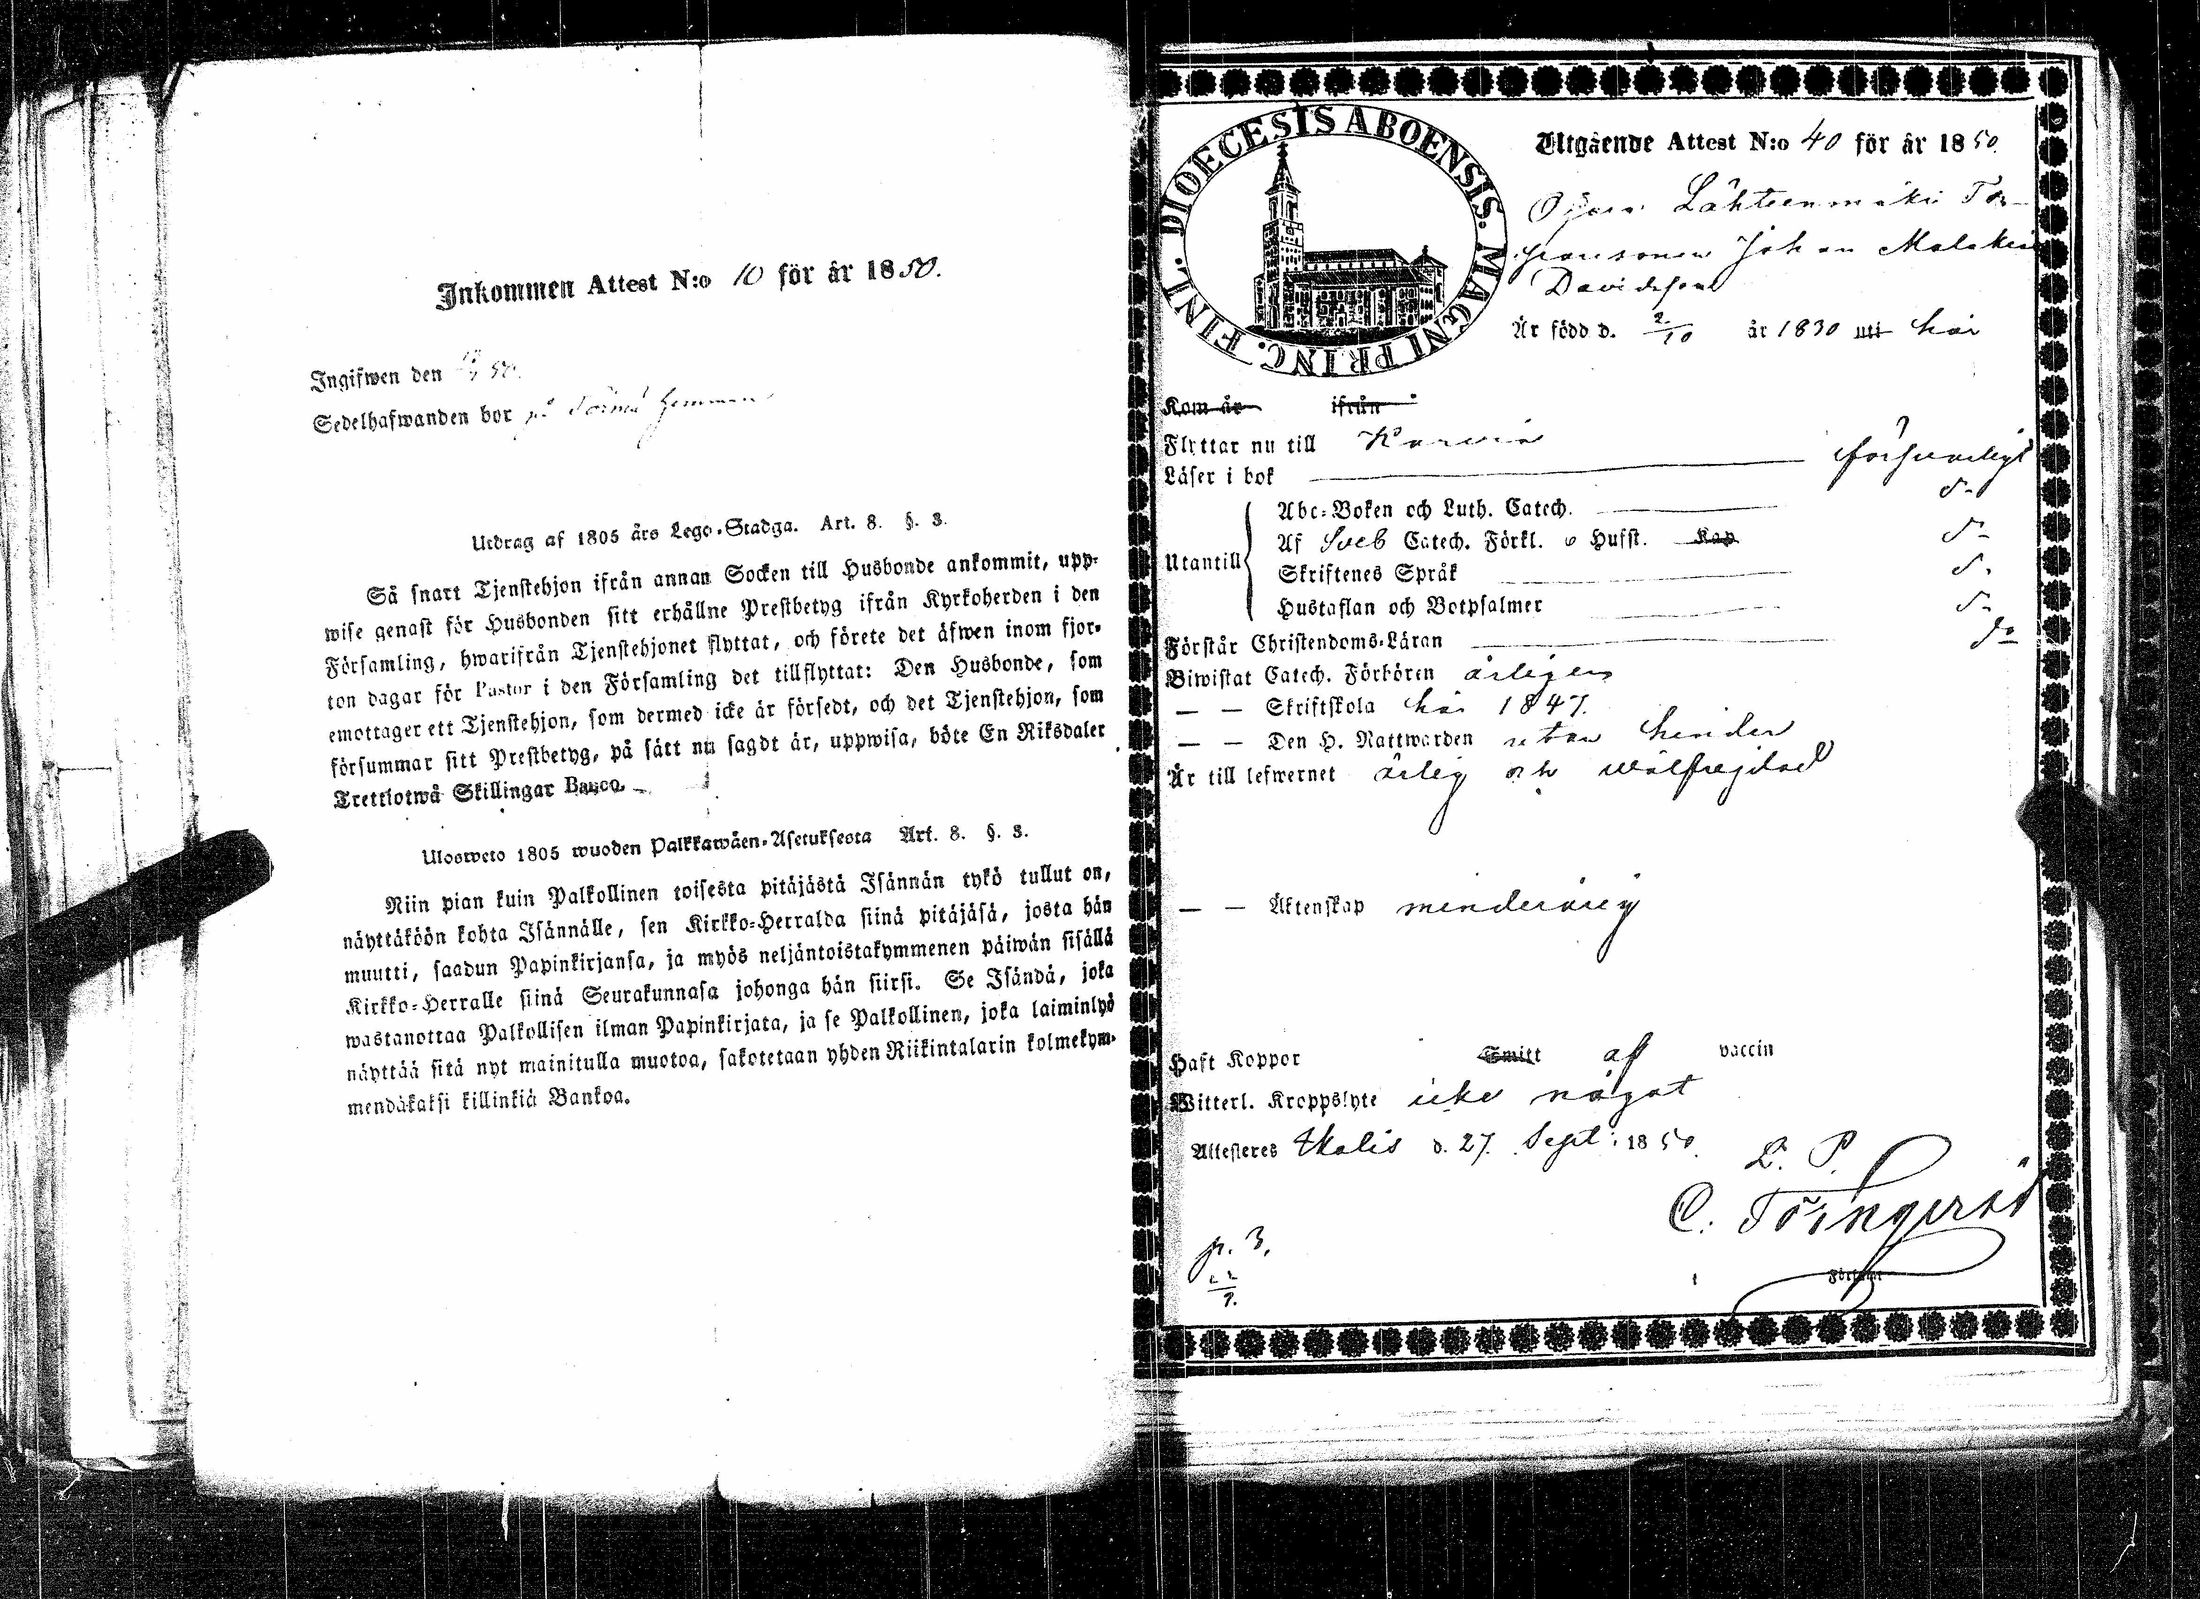 Inkommen Attest N:o 10 för år 1850.
Ingifwen den 50.
Sedelhafwanden bor på hemman
Utdrag af 1805 års Lego-Stadga. Art. 8. §. 3.
Så snart Tjenstehjon ifrån annan Socken till Husbonde ankommit, upp-
wise genast för Husbonden sitt erhållne Prestbetyg ifrån Kyrkoherden i den
Församling, hwarifrån Tjenstehjonet flyttat, och förete det äfwen inom fjor-
ton dagar för Pastor i den Församling det tillflyttat: Den Husbonde, som
emottager ett Tjenstehjon, som dermed icke är försedt, och det Tjenstehjon, som
försummar sitt Prestbetyg, på sätt nu sagdt är, uppwisa, böte En Riksdaler
Trettiotwå Skillingar Banco.
Ulosweto 1805 wuoden Palkkawäen-Asetuksesta Art. 8. §. 3.
Niin pian kuin Palkollinen toisesta pitäjästä Isännän tykö tullut on,
näyttäköön kohta Isännälle, sen Kirkko-Herralda siinä pitäjäsä, josta hän
muutti, saadun Papinkirjansa, ja myös neljäntoistakymmenen päiwän sisällä
Kirkko-Herralle siinä Seurakunnasa johonga hän siirsi. Se Isändä, joka
wastanottaa Palkollisen ilman Papinkirjata, ja se Palkollinen, joka laiminlyö
näyttää sitä nyt mainitulla muotoa, sakotetaan yhden Riikintalarin kolmekym-
mendäkaksi killinkiä Bankoa.
DIOECESIS ABOENSIS. MAGNI PRINC. FINL.
Utgående Attest N:o 40 för år 1850.
Lähteenmäki Tor-
paresonen Johan Malakias
Davidsson
Är född d. 2/10 år 1830 uti här
Kom år ifrån
Flyttar nu till Karvia
Läser i bok försvarligt
Utantill
Abc-Boken och Luth. Catech. do
Af Sveb Catech. Förkl. o Husst. Kap do
Skriftenes Språk do
Hustaflan och Botpsalmer do
Förstår Christendoms-Läran do
Biwistat Catech. Förhören årligen
— — Skriftskola här 1847.
— — Den H. Nattwarden utan hinder
Är till lefwernet ärlig och wälfrejdad
— — Äktenskap minderårig
Haft Koppor Smitt af vaccin
Witterl. Kroppslyte icke något
Attesteres Ikalis d. 27. Sept. 1850.
L. P.
C. Törnqvist
p. 3.